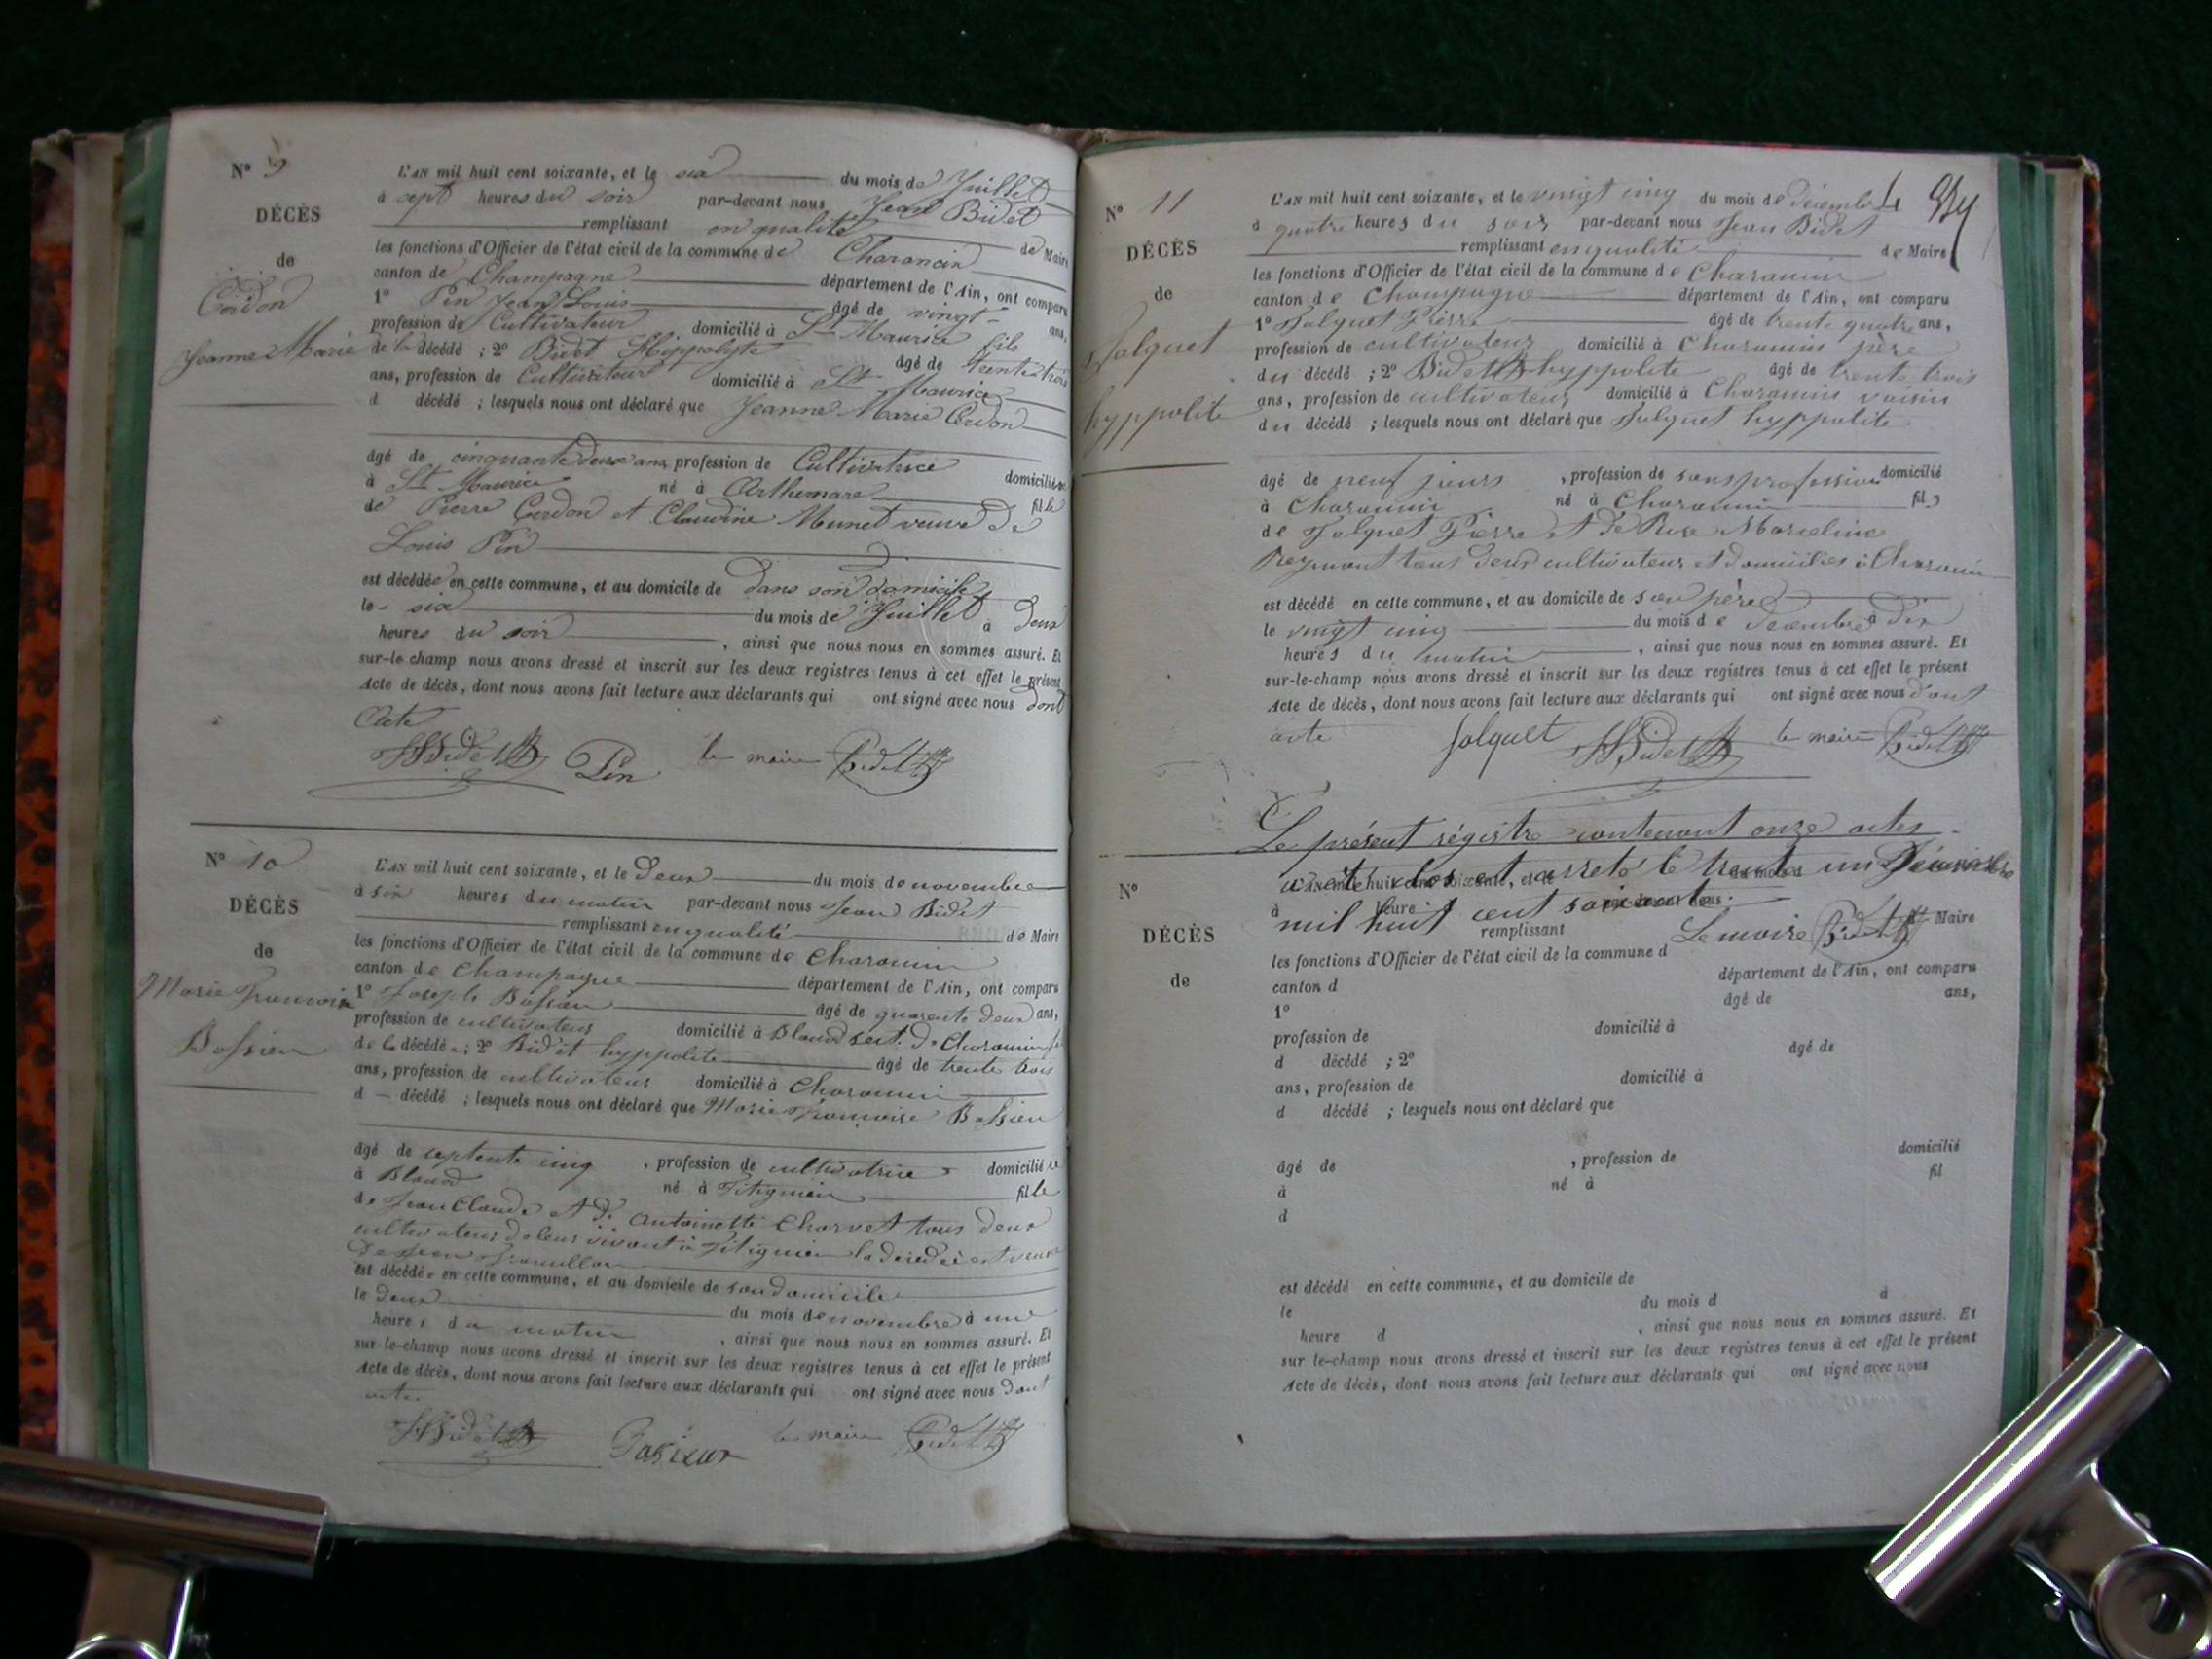 N° 9
DÉCÈS
de
Cordon
Jeanne Marie
L'AN mil huit cent soixante, et le six du mois de Juillet
à sept heures du soir par-devant nous Jean Bidet
remplissant en qualité de Maire
les fonctions d'Officier de l'état civil de la commune de Charancin
canton de Champagne département de l'Ain, ont comparu
1° Pin Jean Louis âgé de vingt- ans,
profession de Cultivateur domicilié à St Maurice fils
de la décédé ; 2° Bidet Hippolyte âgé de trente trois
ans, profession de Cultivateur domicilié à St Maurice
d décédé ; lesquels nous ont déclaré que Jeanne Marie Cordon
âgé de cinquante deux ans, profession de Cultivatrice domiciliée
à St Maurice né à Arthemare fille
de Pierre Cordon et Claudine Munet veuve de
Louis Pin
est décédée en cette commune, et au domicile de dans son domicile
le six du mois de Juillet à deux
heures du soir, ainsi que nous nous en sommes assuré. Et
sur-le-champ nous avons dressé et inscrit sur les deux registres tenus à cet effet le présent
Acte de décès, dont nous avons fait lecture aux déclarants qui ont signé avec nous dont
Acte
HBidet Pin le maire Bidet
N° 10
DÉCÈS
de
Marie Francoise
Bossieu
L'AN mil huit cent soixante, et le deux du mois de novembre
à six heures du matin par-devant nous Jean Bidet
remplissant en qualité de Maire
les fonctions d'Officier de l'état civil de la commune de Charancin
canton de Champagne département de l'Ain, ont comparu
1° Joseph Bossieu âgé de quarente deux ans,
profession de cultivateur domicilié à Blanod sect. de Charancin
de la décédé ; 2° Bidet hyppolite âgé de trente trois
ans, profession de cultivateur domicilié à Charancin
d décédé ; lesquels nous ont déclaré que Marie Francoise Bossieu
âgé de septente cinq, profession de cultivatrice domiciliée
à Blanod né à Fitignieu fille
de Jean Claude et de Antoinette Charvet tous deux
cultivateurs de leur vivant à Fitignieu la décédée est veuve
de
est décédée en cette commune, et au domicile de son domicile
le deux du mois de novembre à une
heures du matin, ainsi que nous nous en sommes assuré. Et
sur-le-champ nous avons dressé et inscrit sur les deux registres tenus à cet effet le présent
Acte de décès, dont nous avons fait lecture aux déclarants qui ont signé avec nous dont
acte.
HBidet le maire Bidet
N° 11
DÉCÈS
de
Jolquet
hyppolite
L'AN mil huit cent soixante, et le vingt cinq du mois de décembre 4
à quatre heures du soir par-devant nous Jean Bidet
remplissant en qualité de Maire
les fonctions d'Officier de l'état civil de la commune de Charancin
canton de Champagne département de l'Ain, ont comparu
1° Jolquet Pierre âgé de trente quatre ans,
profession de cultivateur domicilié à Charancin père
du décédé ; 2° Bidet hyppolite âgé de trente trois
ans, profession de cultivateur domicilié à Charancin voisin
du décédé ; lesquels nous ont déclaré que Jolquet hyppolite
âgé de neuf jours, profession de sans profession domicilié
à Charancin né à Charancin fils
de Jolquet Pierre et de Rose Marceline
Reymont tous deux cultivateurs et domiciliés à Charancin
est décédé en cette commune, et au domicile de son père
le vingt cinq du mois de décembre à dix
heures du matin, ainsi que nous nous en sommes assuré. Et
sur-le-champ nous avons dressé et inscrit sur les deux registres tenus à cet effet le présent
Acte de décès, dont nous avons fait lecture aux déclarants qui ont signé avec nous dont
acte
Jolquet HBidet le maire Bidet
Le présent régistre contenant onze actes
a été clos et arreté le trente un Décembre
mil huit cent soixante.
Le maire Bidet
N°
DÉCÈS
de
L'AN mil huit cent soixante, et le du mois
à heure par-devant nous
remplissant Maire
les fonctions d'Officier de l'état civil de la commune d
canton d département de l'Ain, ont comparu
1° âgé de ans,
profession de domicilié à
d décédé ; 2° âgé de
ans, profession de domicilié à
d décédé ; lesquels nous ont déclaré que
âgé de , profession de domicilié
à né à fil
d
est décédé en cette commune, et au domicile de
le du mois d à
heure d , ainsi que nous nous en sommes assuré. Et
sur le-champ nous avons dressé et inscrit sur les deux registres tenus à cet effet le présent
Acte de décès, dont nous avons fait lecture aux déclarants qui ont signé avec nous